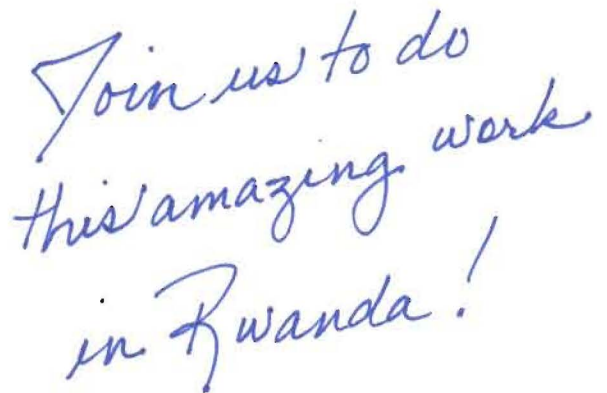 Join us to do
this amazing work
in Rwanda!